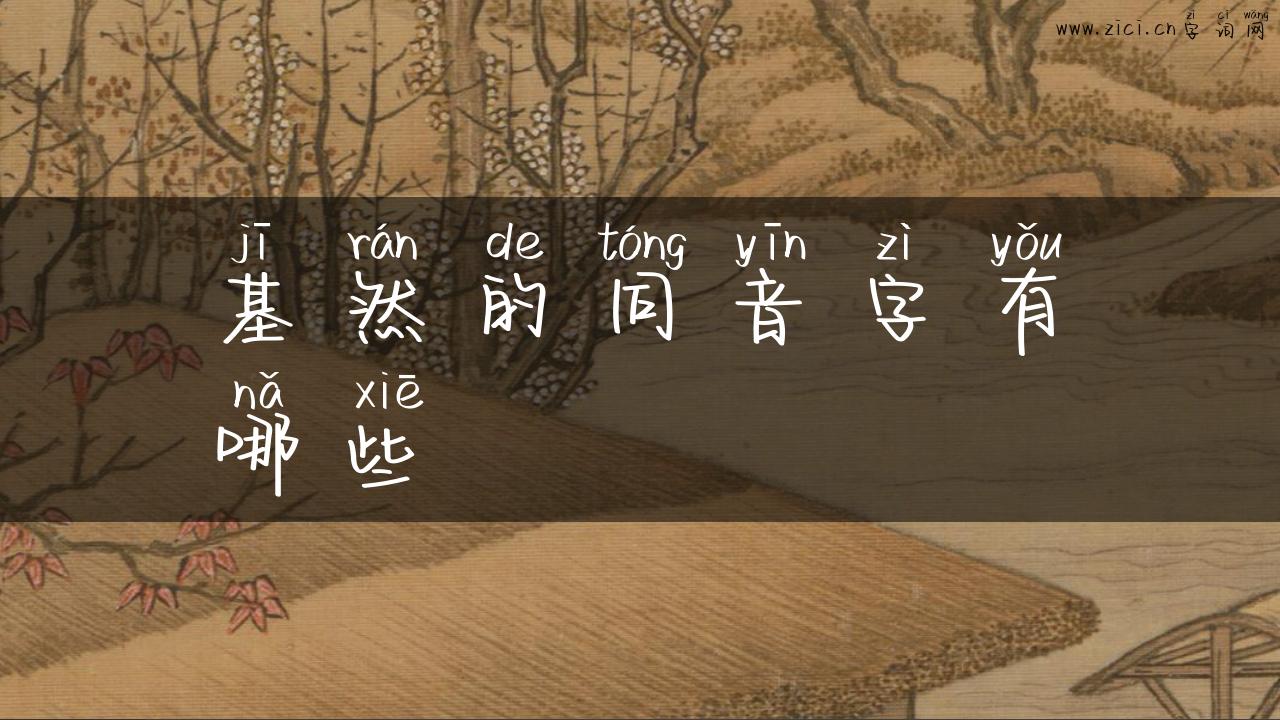 zì cí wǎng
www.zici.cn字词网
jī rán de tóng yīn zì yǒu
基然的同音字有
nǎ xiē
哪些